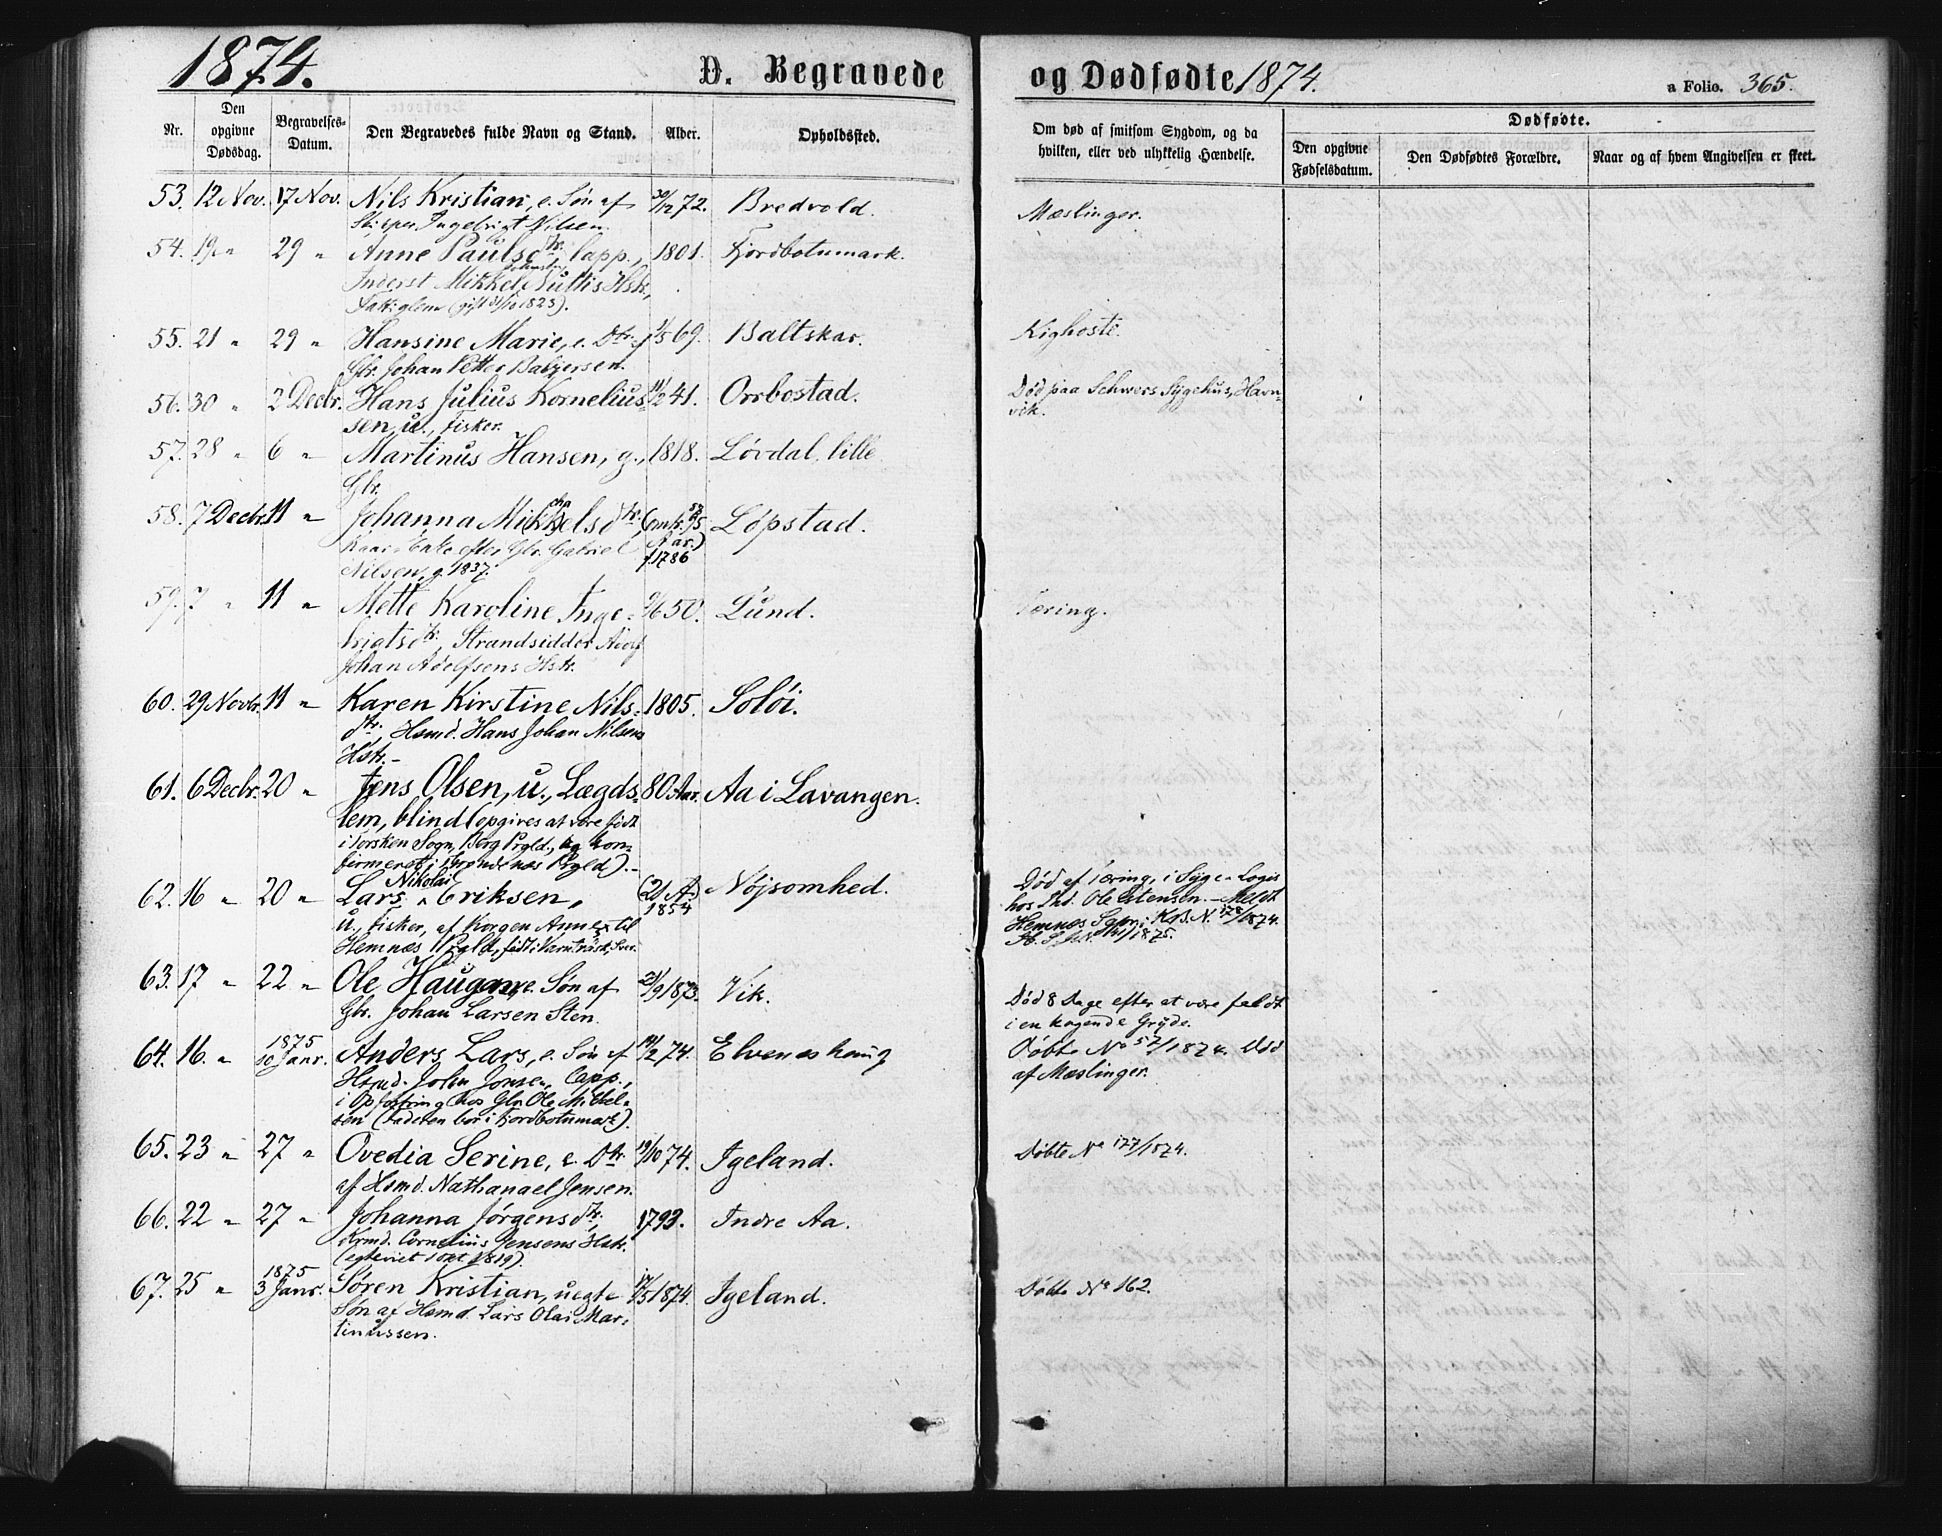 1874.
D. Begravede og Dødfødte 1874.
a Folio. 365.
Nr.
Den opgivne Dødsdag.
Begravelses-Datum.
Den Begravedes fulde Navn og Stand.
Alder.
Opholdssted.
Om død af smitsom Sygdom, og da hvilken, eller ved ulykkelig Hændelse.
Dødfødte.
Den opgivne Fødselsdatum.
Den Dødfødtes Forældre.
Naar og af hvem Angivelsen er skeet.
53. 12 Nov. 17 Nov. Nils Kristian, e. Søn af 30/12 72. Bredvold. Mæslinger.
Skipper Ingebrigt Nilsen.
54. 19 " 29 " Anne Paulsdtr., lapp., 1801. Fjordbotnmark.
Inderst Mikkel Nuttis Hstr.,
Fattiglem (gift 31/10 1823).
55. 21 " 29 " Hansine Marie, e. Dtr. af 69. Baltskar. Kighoste.
Gbr. Johan Petter Balzersen.
56. 30 " 2 Decbr. Hans Julius Kornelius- 11/2 41. Orrbostad. Død paa Schwers Sygehus, Havn-
sen, u., Fisker. vik.
57. 28 " 6 " Martinus Hansen, g., 1818. Løvdal, lille
Gbr.
58. 7 Decbr. 11 " Johanna Mikkelsdtr. Løpstad.
Kaare Enke efter Gbr. Gabriel
Nilsen, g. 1837. f. 1786
59. 7 " 11 " Mette Karoline Inge- 50. Lund. Tæring.
brigtsdtr., Strandsidder Adolf
Johan Adolfsens Hstr.
60. 29 Novbr. 11 " Karen Kirstine Nils- 1805. Soløi.
dtr., Hsmd. Hans Johan Nilsens
Hstr. -
61. 6 Decbr. 20 " Jens Olsen, u., Lægds- 80 Aar. Aa i Lavangen.
lem, blind (opgives at være født
i Torsken Sogn, Berg Prgld., og kon-
firmeret i Trondenæs Prgld). -
62. 16 " 20 " Lars Nikolai Eriksen, (21 A.) 1854 Nøjsomhed. Død af Tæring, i Syge-Logis
u., Fisker, af Korgen Annex til hos Ole Stensen. - Meldt
Hemnes Prgld, født i Sver. Hemnes Sgpr. i KB. N. 178/1874.
63. 17 " 22 " Ole Haugan, e. Søn af 21/9 1873. Vik. Død 8 Dage efter at være faldt
Gbr. Johan Larsen Sten. i en kogende Gryde.
64. 16. " 1875 10 Janr. Anders Lars, e. Søn af 14/2 74. Elveneshaug Døbte No 57/1874. Død
Hsmd. John Jonsen, lapp., af Mæslinger.
i Opfostring hos Gbr. Ole Mikkel-
sen (Faderen bor i Fjordbotnmark).
65. 23 " 27 " Ovedia Serine, e. Dtr. 19/10 74. Igeland. Døbte No 177/1874.
af Hsmd. Nathanael Jensen.
66. 22 " 27 " Johanna Jørgensdtr., 1793. Indre Aa.
Krmd. Cornelius Jensens Hstr.
(egteviet 1 Oct 1819).
67. 25 " 1875 3 Janr. Søren Kristian, uegte 17/5 1874. Igeland. Døbte No 162.
Søn af Hsmd. Lars Olai Mar-
tinussen.